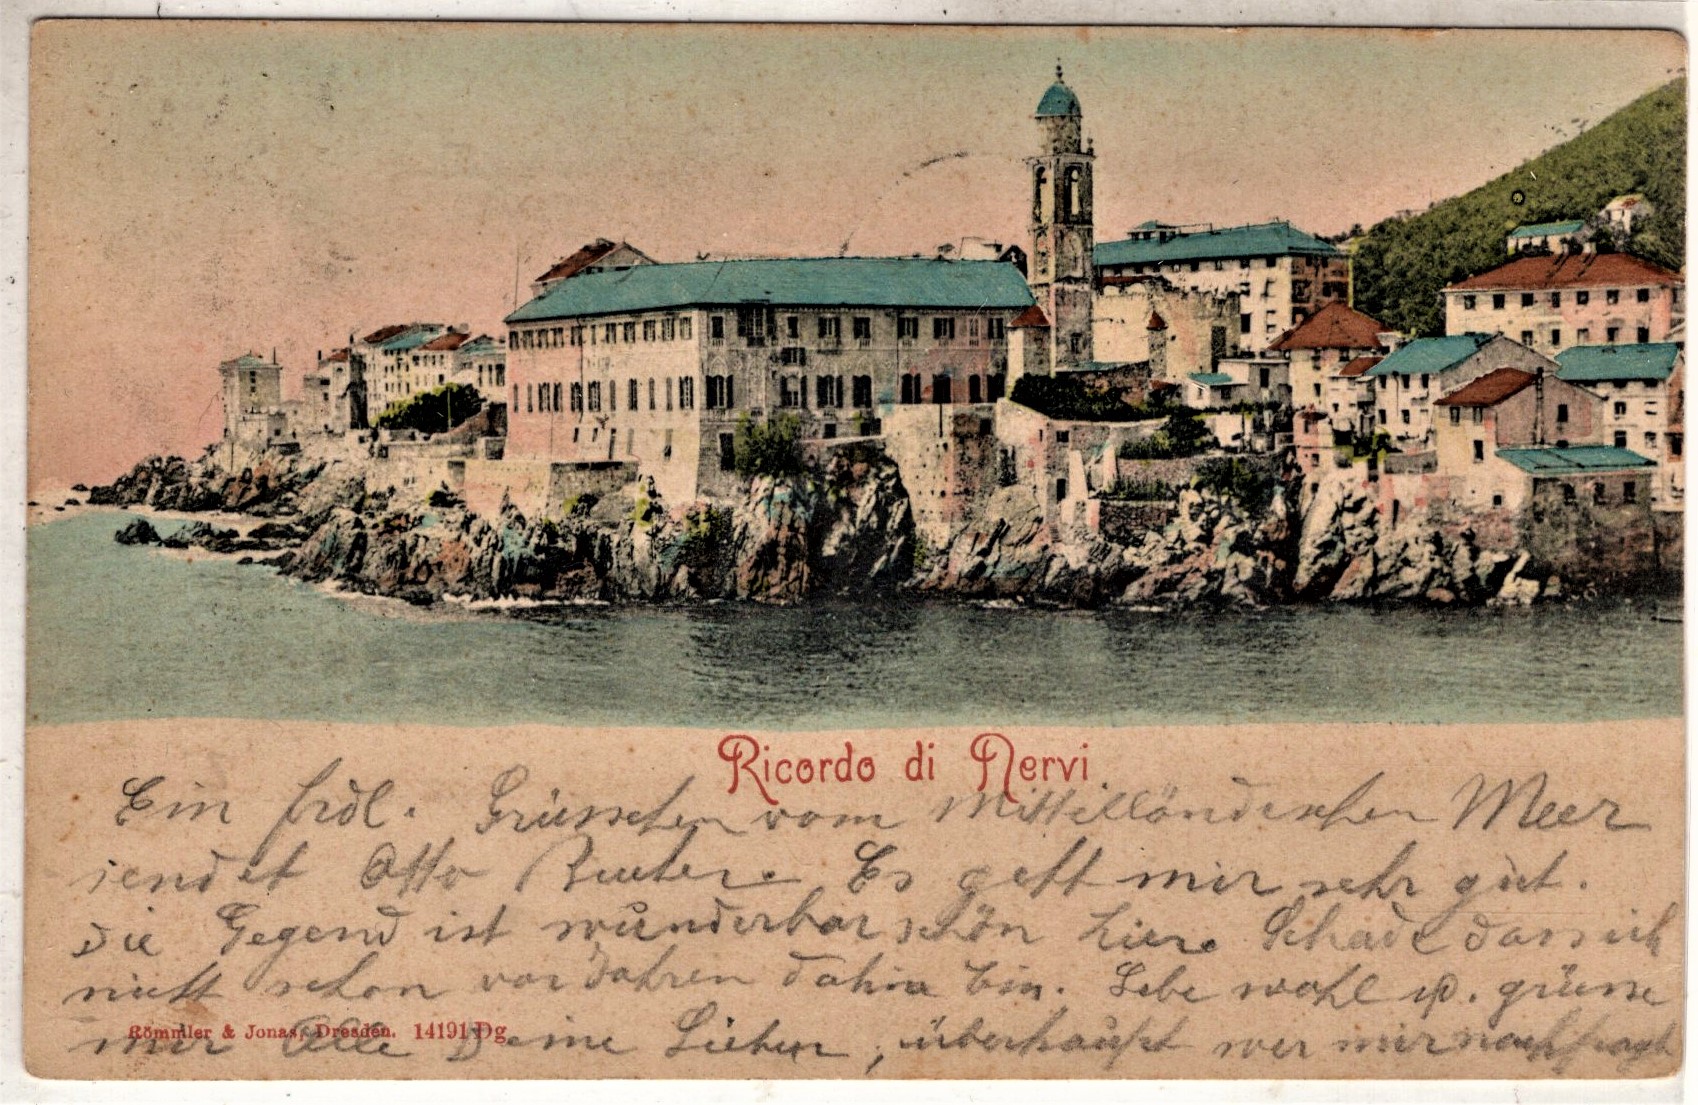 Ricordo di Nervi
Ein frdl. Grüsschen vom Mittelländischen Meer
sendet Otto Reuter. Es geht mir sehr gut.
Die Gegend ist wunderbar schön hier. Schade dass ich
nicht schon vor Jahren dahin bin. Lebe wohl u. grüsse
mir Alle Deine Lieben, überhaupt wer mir nachfragt
Römmler & Jonas, Dresden. 14191 Dg